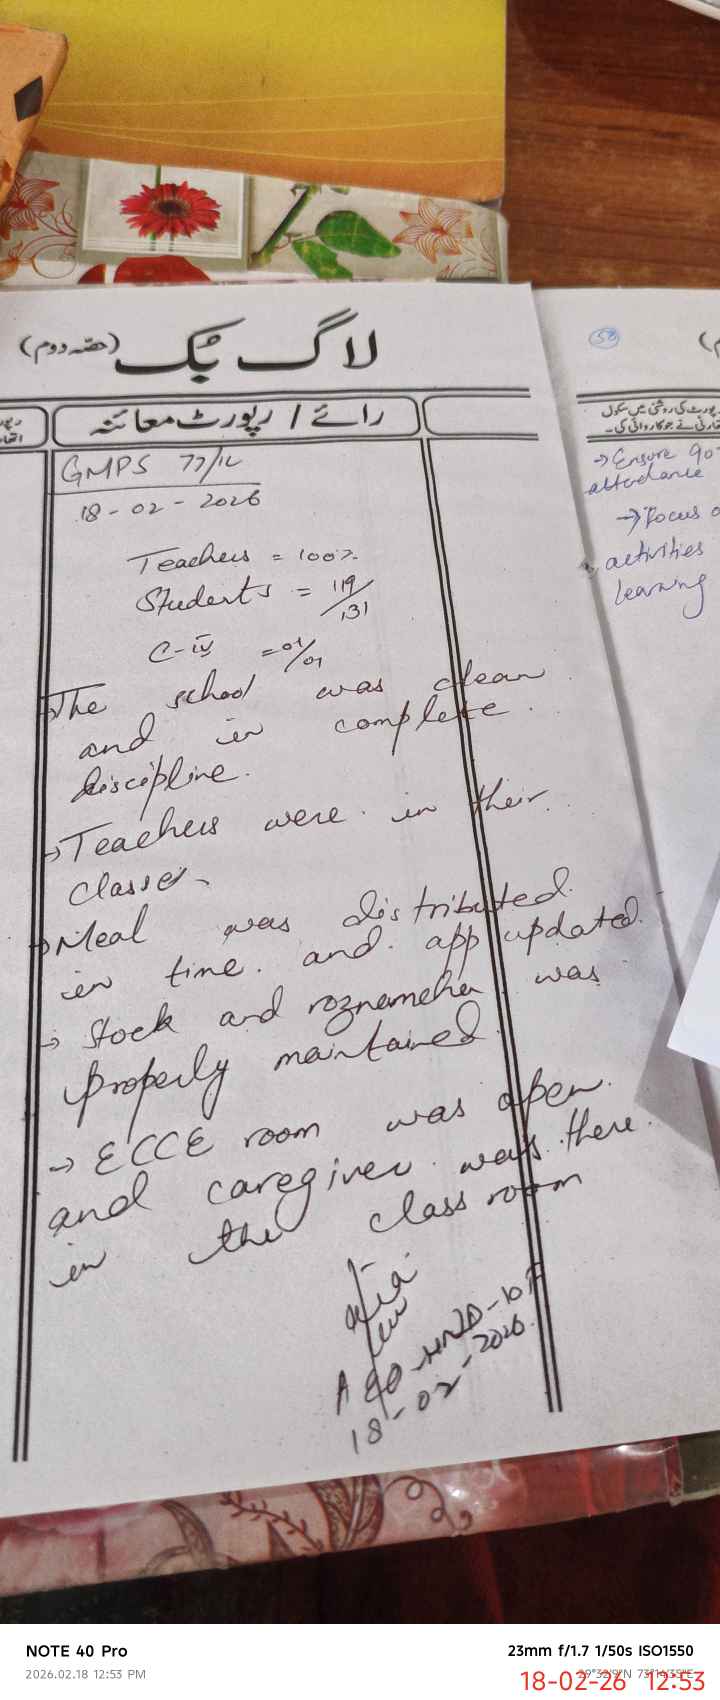 لاگ بک (حصّہ دوم)
رائے / رپورٹ معائنہ
GMPS 77/1L
18-02-2026
Teachers = 100%
Students = 119/131
C-IV = 01/01
→ The school was clean
and in complete
discipline.
→ Teachers were in their
classes
→ Meal was distributed
in time. and app updated
→ Stock and roznamcha was
properly maintained
→ ECCE room was open.
and caregiver was there
in the class room
18-02-2026
58
→ Ensure 90
attendance
→ Focus o
activities
learning
NOTE 40 Pro
2026.02.18 12:53 PM
23mm f/1.7 1/50s ISO1550
18-02-26 12:53